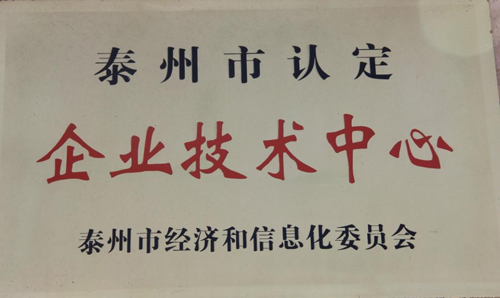 泰州市认定
企业技术中心
泰州市经济和信息化委员会